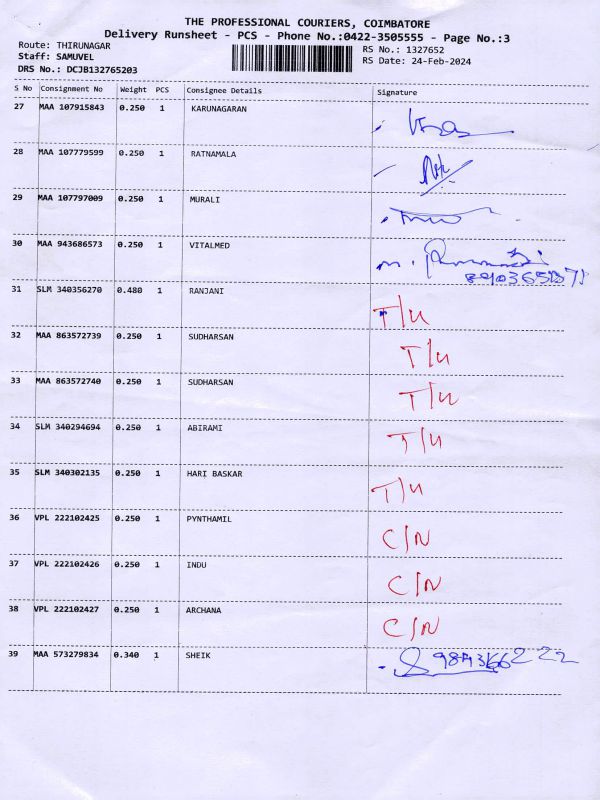 THE PROFESSIONAL COURIERS, COIMBATORE
Delivery Runsheet - PCS - Phone No.:0422-3505555 - Page No.:3
Route: THIRUNAGAR RS No.: 1327652
Staff: SAMUVEL RS Date: 24-Feb-2024
DRS No.: DCJB132765203
S No Consignment No Weight PCS Consignee Details Signature
27 MAA 107915843 0.250 1 KARUNAGARAN
28 MAA 107779599 0.250 1 RATNAMALA
29 MAA 107797009 0.250 1 MURALI
30 MAA 943686573 0.250 1 VITALMED
31 SLM 340356270 0.480 1 RANJANI T/U
32 MAA 863572739 0.250 1 SUDHARSAN T/U
33 MAA 863572740 0.250 1 SUDHARSAN T/U
34 SLM 340294694 0.250 1 ABIRAMI T/U
35 SLM 340302135 0.250 1 HARI BASKAR T/U
36 VPL 222102425 0.250 1 PYNTHAMIL C/N
37 VPL 222102426 0.250 1 INDU C/N
38 VPL 222102427 0.250 1 ARCHANA C/N
39 MAA 573279834 0.340 1 SHEIK